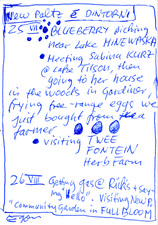 New Paltz & DINTORNI
25 VIII • BLUEBERRY picking
near Lake MINEWASKA
• Meeting Sabina KURZ
@ Lake Tilson, then
going to her house
in the woods in Gardiner,
frying free-range eggs we
just bought from a
farmer
• visiting TWEE
FONTEIN
Herb Farm
26 VIII. Geting gas @ Rick's + say-
ing "Hello". Visiting New P.
"Community Garden in FULL BLOOM